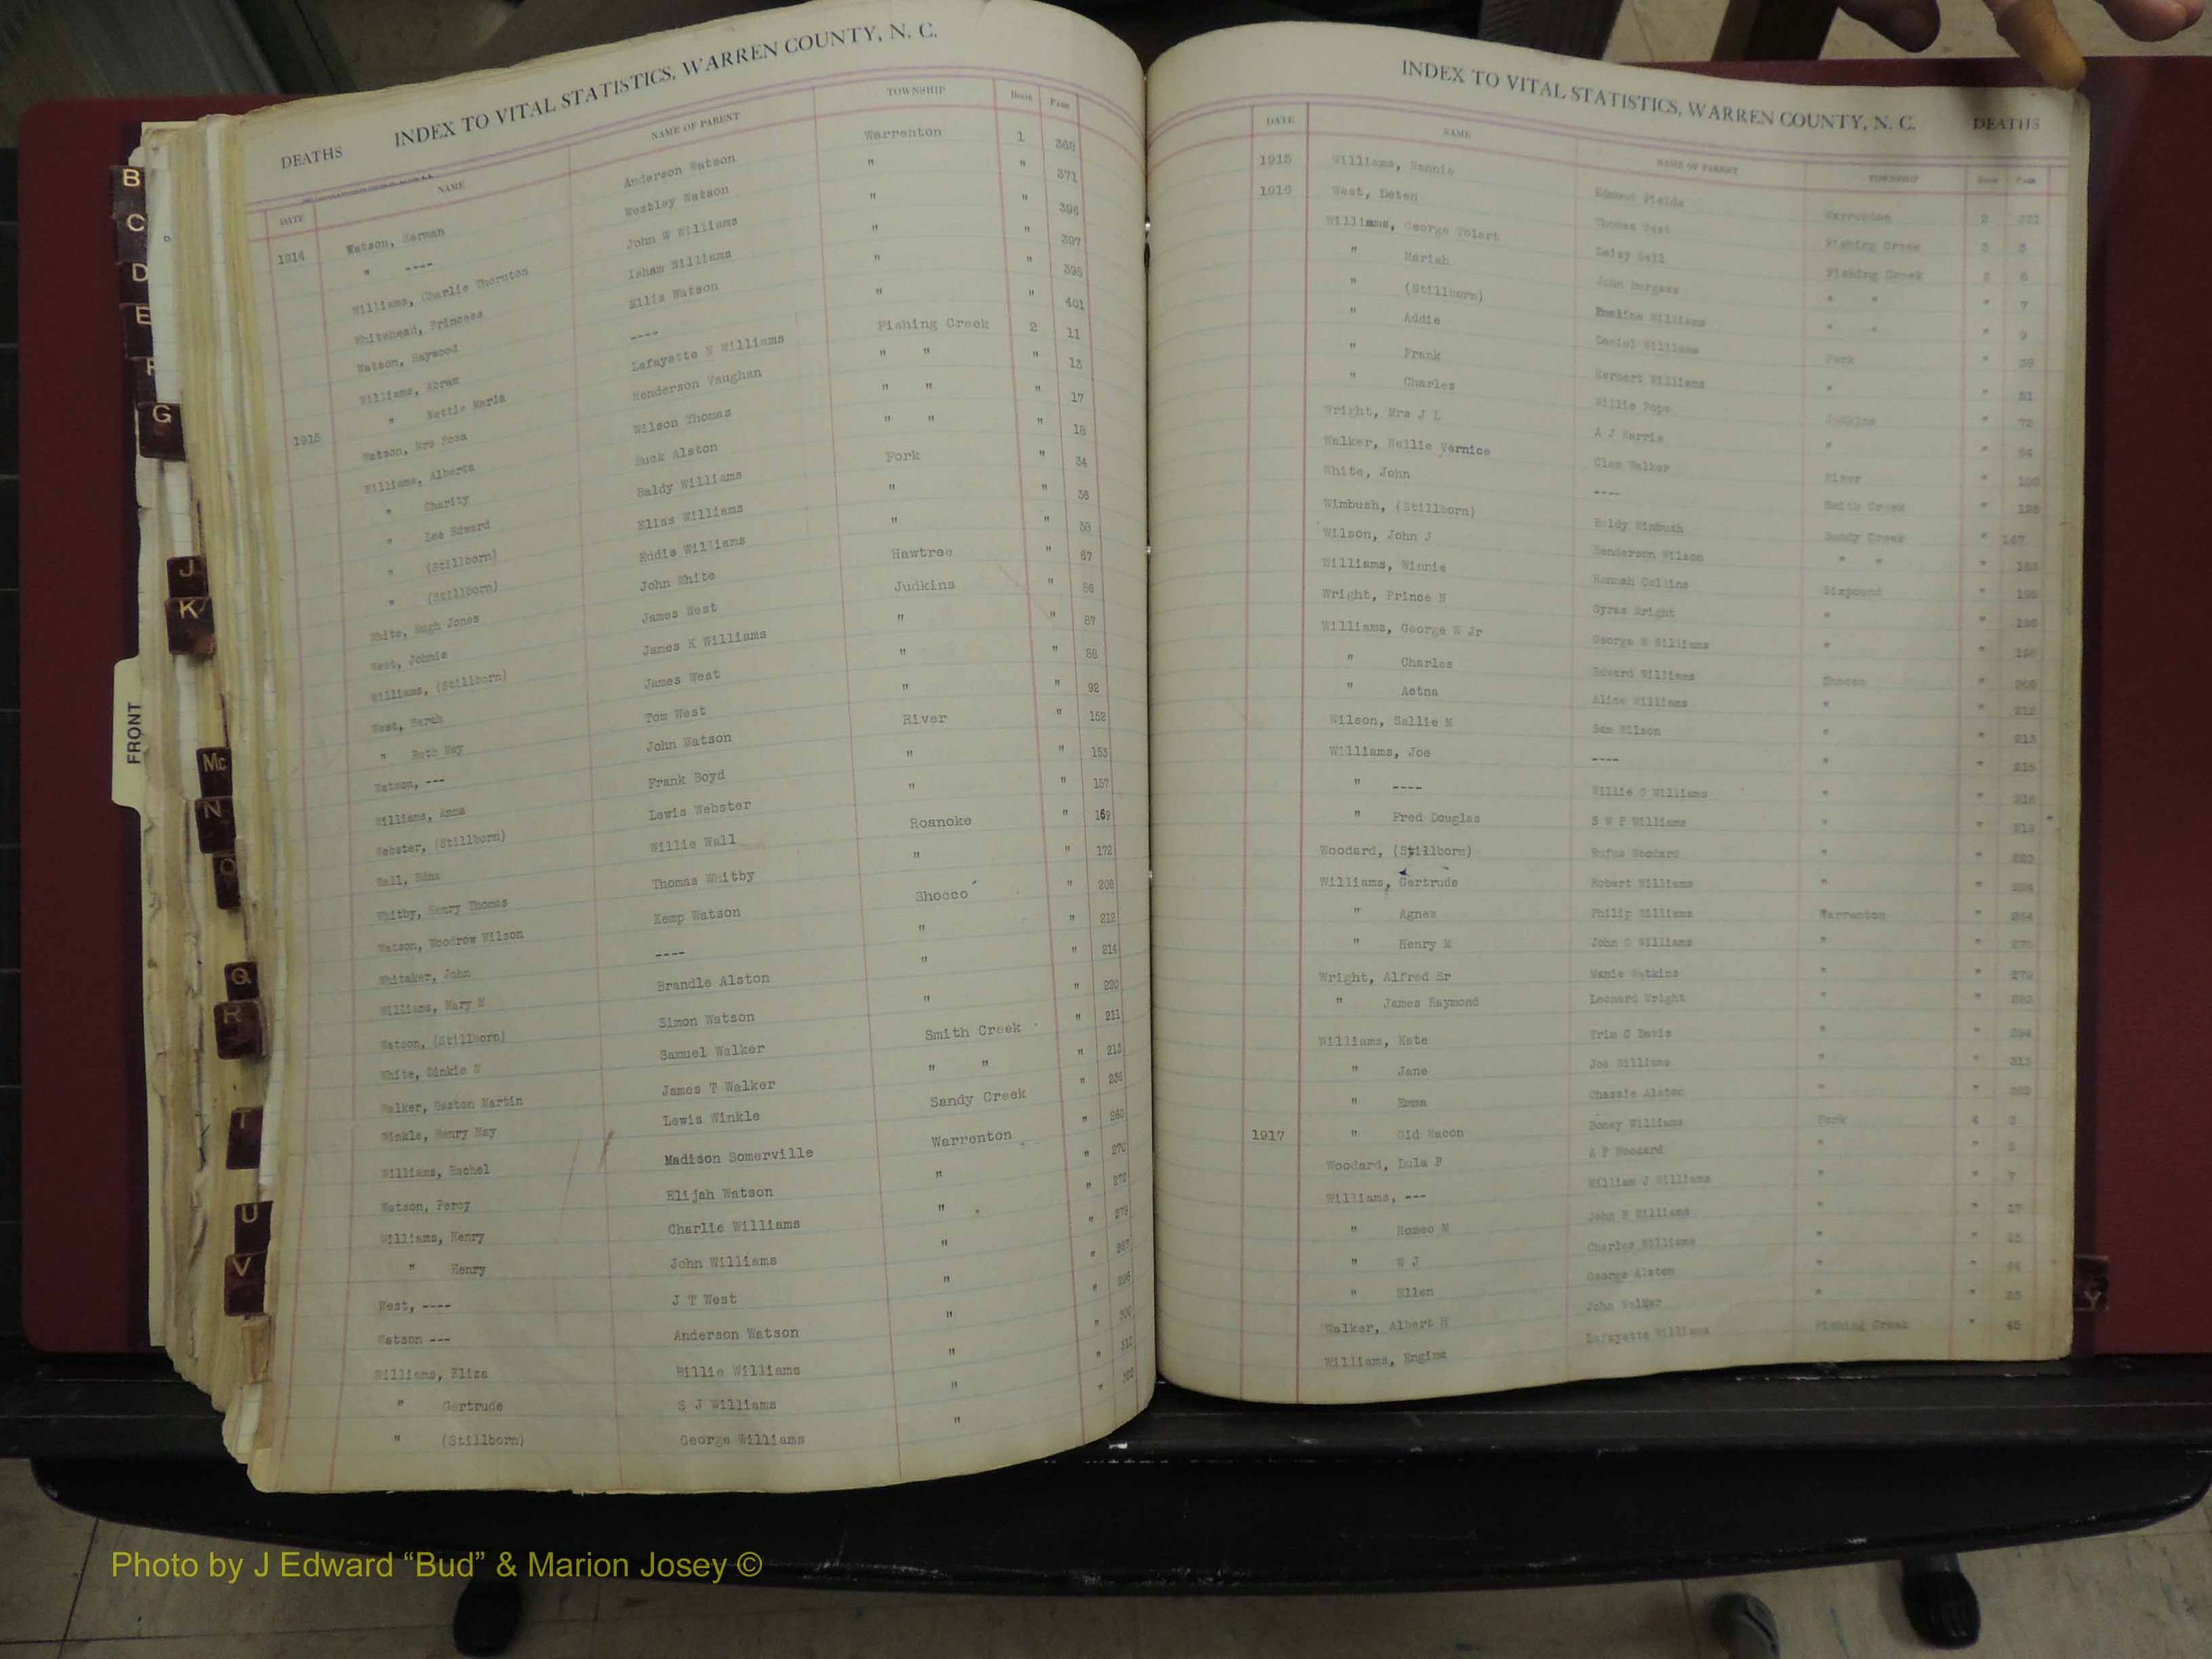 INDEX TO VITAL STATISTICS, WARREN COUNTY, N. C.
DEATHS
DATE NAME NAME OF PARENT TOWNSHIP Book Page
1914 Watson, Herman Anderson Watson Warrenton 1 368
" ---- Westley Watson " " 371
Williams, Charlie Thornton John W Williams " " 396
Whitehead, Princess Isham Williams " " 397
Watson, Haywood Ellis Watson " " 398
Williams, Abram ---- " " 401
" Nettie Maria Lafayette N Williams Fishing Creek 2 11
1915 Watson, Mrs Rosa Henderson Vaughan " " " 13
Williams, Alberta Wilson Thomas " " " 17
" Charity Buck Alston " " " 18
" Lee Edward Baldy Williams Fork " 34
" (Stillborn) Elias Williams " " 36
" (Stillborn) Eddie Williams " " 38
White, Hugh Jones John White Hawtree " 67
West, Johnie James West Judkins " 86
Williams, (Stillborn) James K Williams " " 87
West, Sarah James West " " 88
" Ruth May Tom West " " 92
Watson, --- John Watson River " 152
Williams, Anna Frank Boyd " " 153
Webster, (Stillborn) Lewis Webster " " 157
Wall, Edna Willie Wall Roanoke " 169
Whitby, Henry Thomas Thomas Whitby " " 172
Watson, Woodrow Wilson Kemp Watson Shocco " 208
Whitaker, John ---- " " 212
Williams, Mary M Brandle Alston " " 214
Watson, (Stillborn) Simon Watson " " 220
White, Dinkie N Samuel Walker Smith Creek " 211
Walker, Gaston Martin James T Walker " " " 213
Winkle, Henry May Lewis Winkle Sandy Creek " 236
Williams, Rachel Madison Somerville Warrenton " 260
Watson, Percy Elijah Watson " " 270
Williams, Henry Charlie Williams " " 272
" Henry John Williams " " 279
West, ---- J T West " " 287
Watson --- Anderson Watson " " 298
Williams, Eliza Billie Williams " " 300
" Gertrude S J Williams " " 312
" (Stillborn) George Williams " "
INDEX TO VITAL STATISTICS, WARREN COUNTY, N. C. DEATHS
DATE NAME NAME OF PARENT TOWNSHIP Book Page
1915 Williams, Nannie Edmond Fields Warrenton 2 331
1916 West, Doten Thomas West Fishing Creek 3 5
Williams, George Tolart Daisy Bell Fishing Creek 3 6
" Mariah John Burgess " " " 7
" (Stillborn) Erskine Williams " " " 9
" Addie Daniel Williams Fork " 38
" Frank Herbert Williams " " 51
" Charles Willie Pope Judkins " 72
Wright, Mrs J L A J Harris " " 84
Walker, Nellie Vernice Clem Walker River " 102
White, John ---- Smith Creek " 125
Wimbush, (Stillborn) Baldy Wimbush Sandy Creek " 147
Wilson, John J Henderson Wilson " " "
Williams, Winnie Hannah Collins Sixpound "
Wright, Prince N Cyrus Wright " " 196
Williams, George W Jr George W Williams " "
" Charles Edward Williams Shocco "
" Aetna Alice Williams " " 212
Wilson, Sallie M Sam Wilson " " 213
Williams, Joe ---- " " 215
" ---- Willie G Williams " "
" Fred Douglas S W P Williams " " 219
Woodard, (Stillborn) Rufus Woodard " " 223
Williams, Gertrude Robert Williams " "
" Agnes Philip Williams Warrenton " 264
" Henry M John G Williams " "
Wright, Alfred Sr Mamie Watkins " " 279
" James Raymond Leonard Wright " "
Williams, Kate Trim C Davis " " 294
" Jane Joe Williams " " 313
" Emma Chassie Alston " "
1917 " Sid Macon Boney Williams Fork 4 3
Woodard, Lula P A P Woodard " " 5
Williams, --- William J Williams " " 7
" Romeo M John R Williams " " 17
" W J Charles Williams " "
" Ellen George Alston " "
Walker, Albert H John Walker " "
Williams, Engima Lafayette Williams Fishing Creek " 45
B
C
D
E
F
G
J
K
FRONT
Mc
N
O
Q
R
T
U
V
Y
Photo by J Edward “Bud” & Marion Josey ©